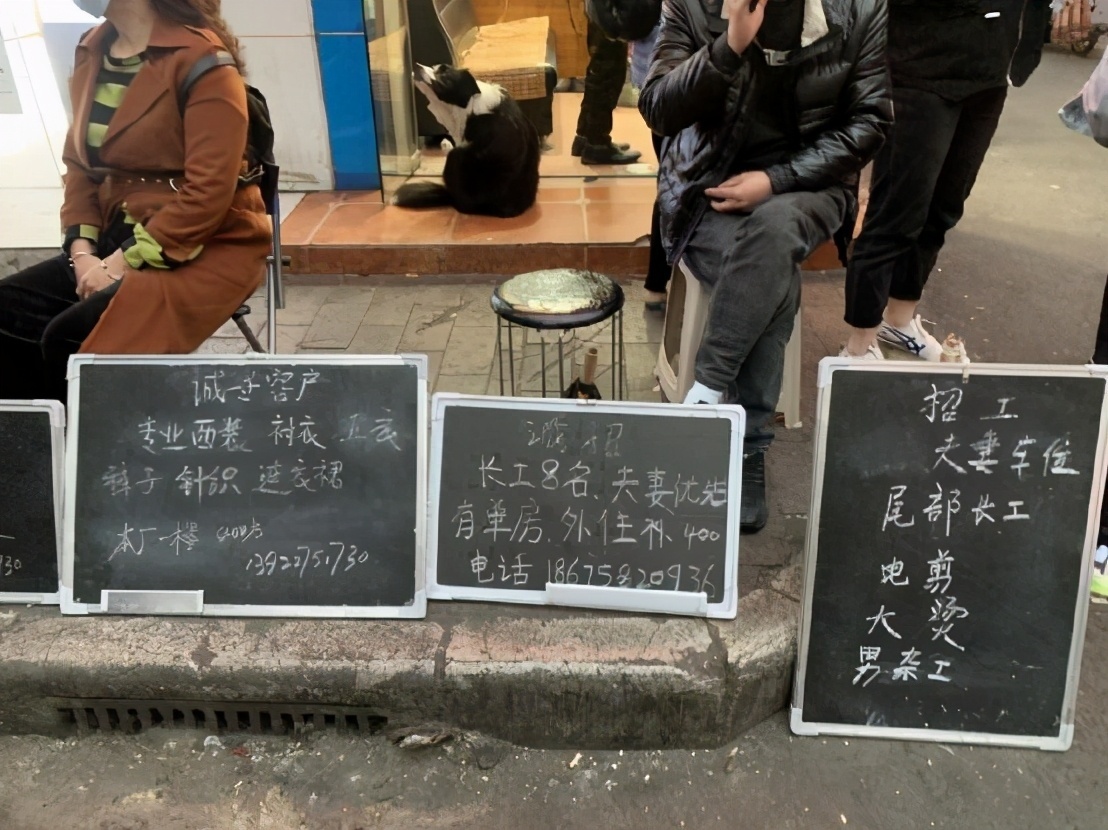 30
诚一世客户
专业西装 衬衣 卫衣
裤子 针织 连衣裙
本厂一楼 400方
13922751730
诚招
长工8名、夫妻优先
有单房、外住补400
电话 18675820936
招工
夫妻车位
尾部长工
电剪
大烫
男杂工